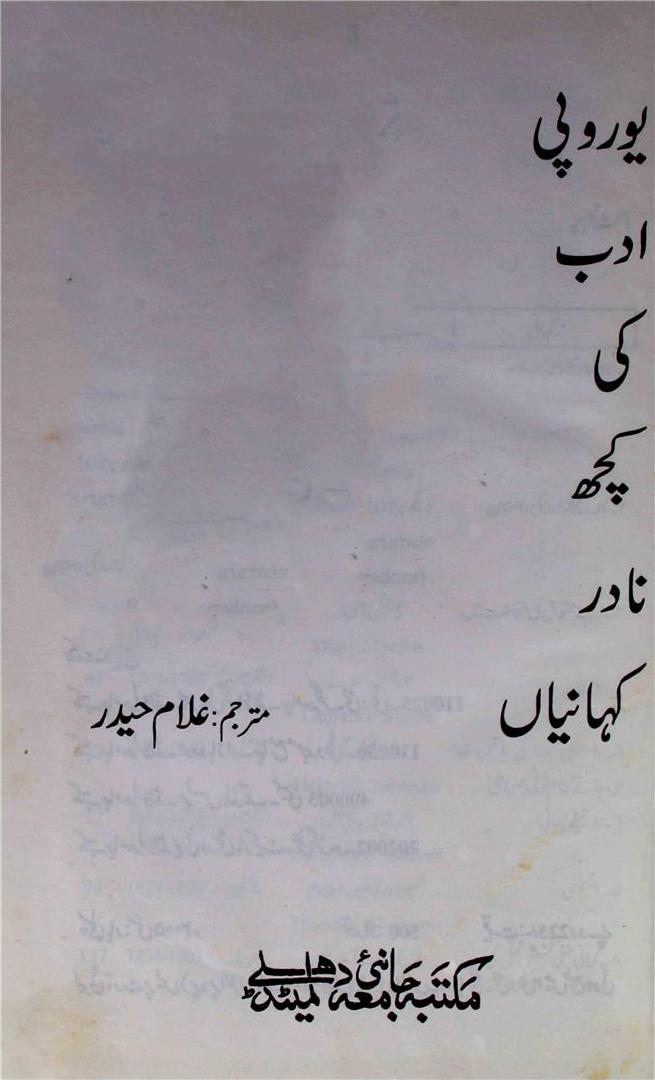 یوروپی
ادب
کی
کچھ
نادر
کہانیاں
مترجم: غلام حیدر
مکتبہ جامعہ نئی دہلی لمیٹڈ